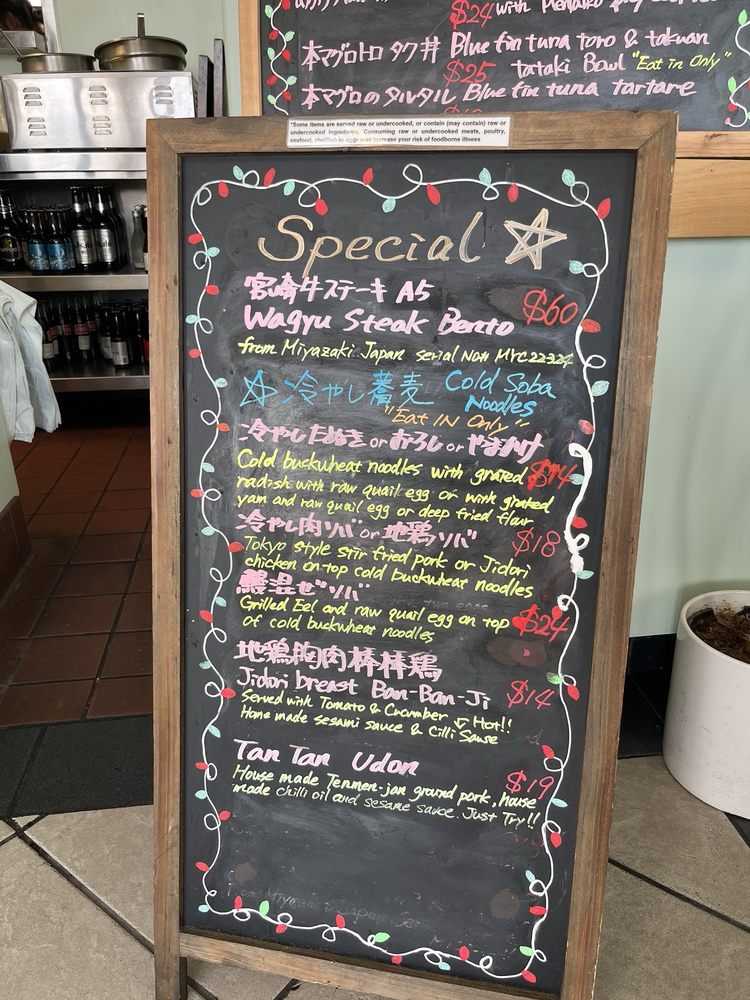 $24 with
本マグロトロ タク丼 Blue fin tuna toro & takuan
$25 tataki Bowl "Eat in Only"
本マグロのタルタル Blue fin tuna tartare
*Some items are served raw or undercooked, or contain (may contain) raw or
undercooked ingredients. Consuming raw or undercooked meats, poultry,
seafood, shellfish or eggs may increase your risk of foodborne illness
Special
宮崎牛ステーキ A5 $60
Wagyu Steak Bento
from Miyazaki Japan serial No# MYC22324
冷やし蕎麦 Cold Soba
Noodles
"Eat IN Only"
冷やしたぬき or おろし or やまかけ
Cold buckwheat noodles with grated $14
radish with raw quail egg or with grated
yam and raw quail egg or deep fried flour
冷やし肉ソバ or 地鶏ソバ $18
Tokyo style stir fried pork or Jidori
chicken on top cold buckwheat noodles
鰻混ぜソバ
Grilled Eel and raw quail egg on top $24
of cold buckwheat noodles
地鶏胸肉棒棒鶏
Jidori breast Ban-Ban-Ji $14
Served with Tomato & Cucumber Hot!!
Home made sesami sauce & Cilli Sause
Tan Tan Udon $19
House made Tenmen-jan ground pork, house
made chilli oil and sesame sauce. Just Try!!